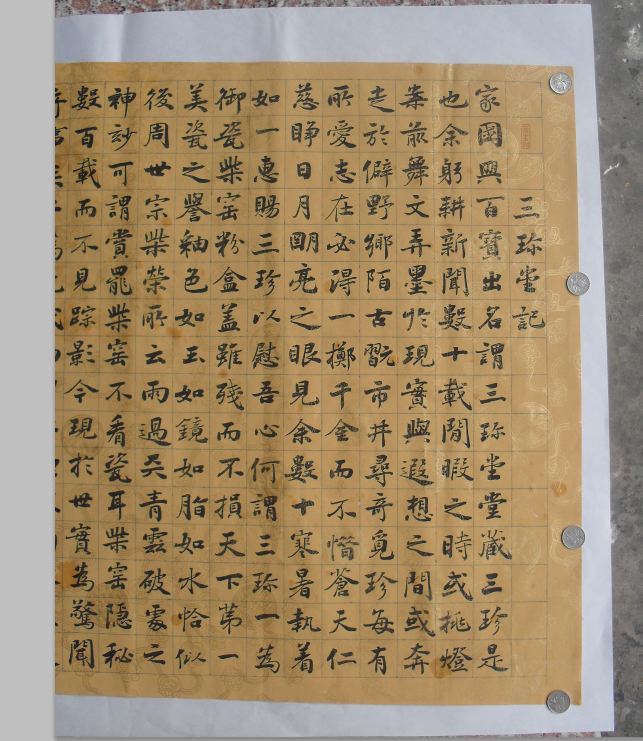 三珎坣記
家國興百寶出名謂三珎坣堂藏三珎是
也余躬耕新聞數十載閒暇之時或挑燈
案前舞文弄墨於現實與遐想之間或奔
走於僻野鄉陌古翫市井尋奇覓珍每有
所愛志在必得一擲千金而不惜蒼天仁
慈睜日月朙亮之眼見余數十寒暑執着
如一惠賜三珍以慰吾心何謂三珎一為
御瓷柴窑粉盒蓋雖殘而不損天下第一
美瓷之譽釉色如玉如鏡如脂如水恰似
後周世宗柴榮所云雨過天青雲破處之
神玅可謂賞罷柴窑不看瓷耳柴窑隱秘
數百載而不見踪影今現於世實為驚聞